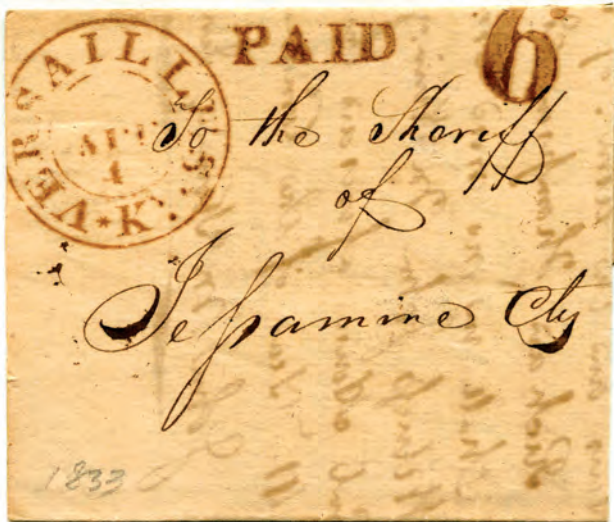 VERSAILLES. K.
APR
4
PAID
6
To the Sheriff
of
Jessamine Cty
1833